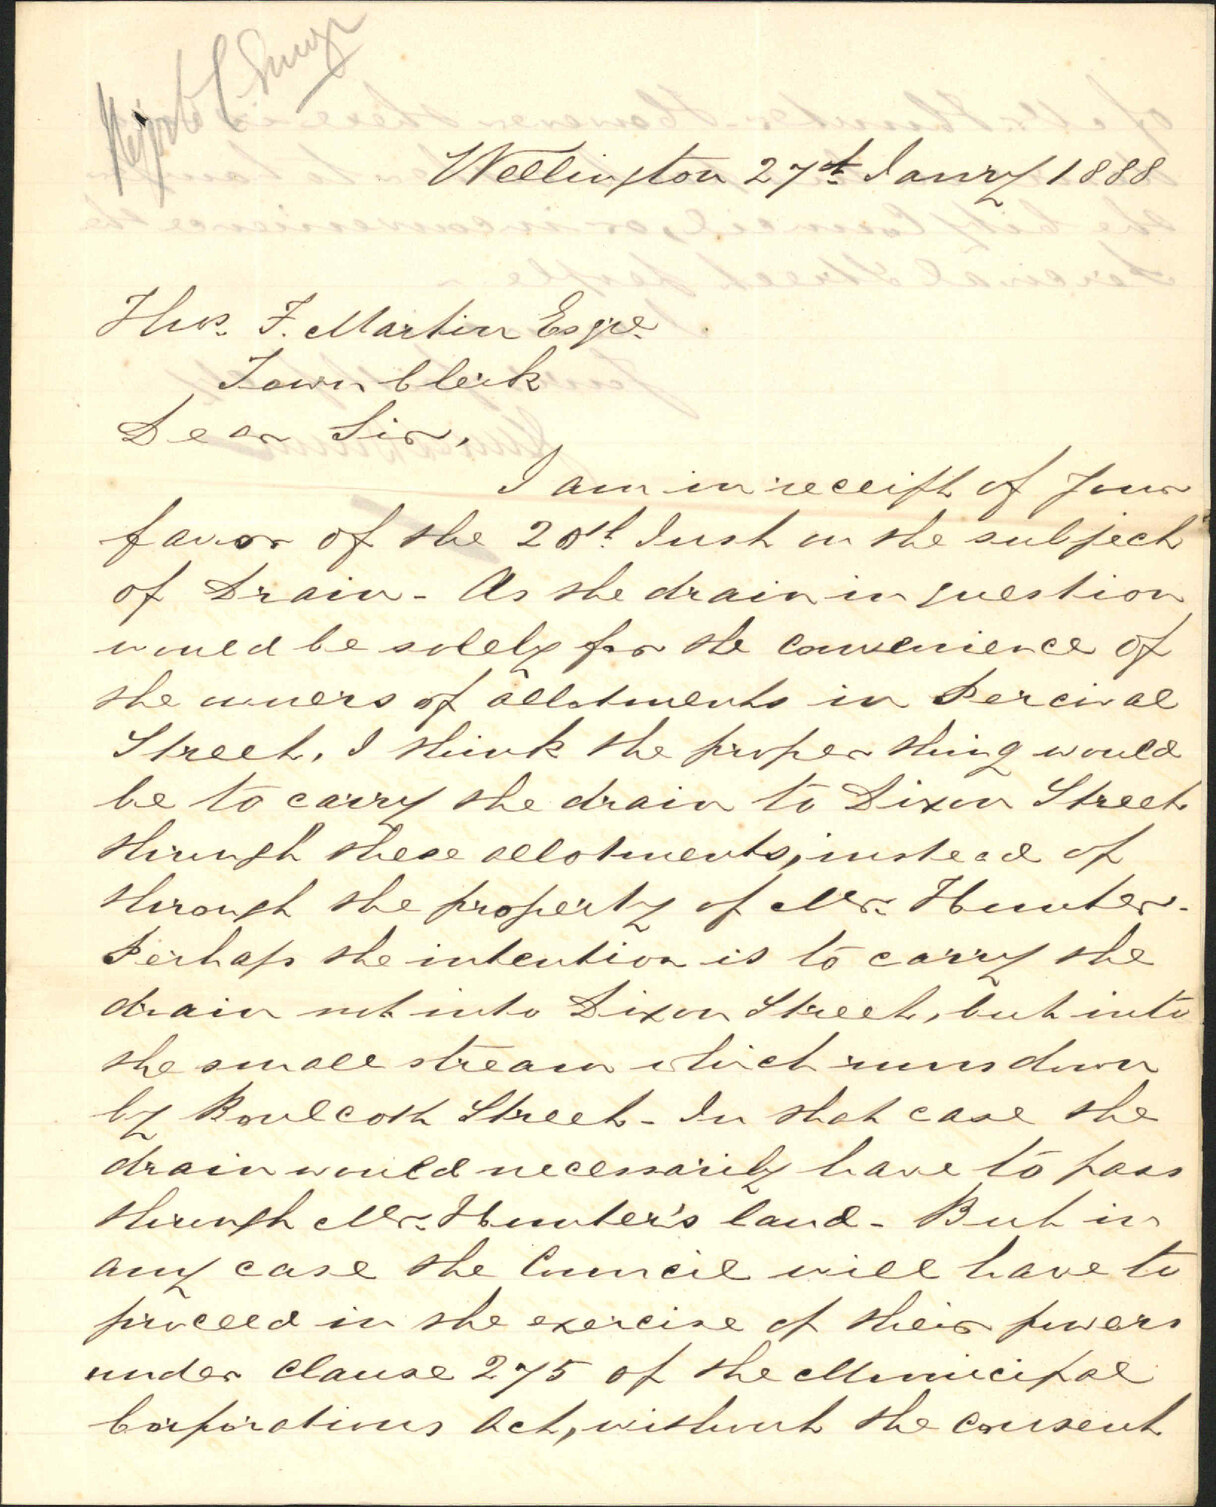 Wellington 27th Janry 1888
Thos. F. Martin Esqre.
Town Clerk
Dear Sir,
I am in receipt of your
favor of the 20th Inst on the subject
of Drain - As the drain in question
would be solely for the convenience of
the owners of allotments in Percival
Street, I think the proper thing would
be to carry the drain to Dixon Street
through these allotments, instead of
through the property of Mr. Hunter.
Perhaps the intention is to carry the
drain not into Dixon Street, but into
the small stream which runs down
by Boulcott Street - In that case the
drain would necessarily have to pass
through Mr. Hunter's land - But in
any case the Council will have to
proceed in the exercise of their powers
under Clause 275 of the Municipal
Corporations Act, without the consent